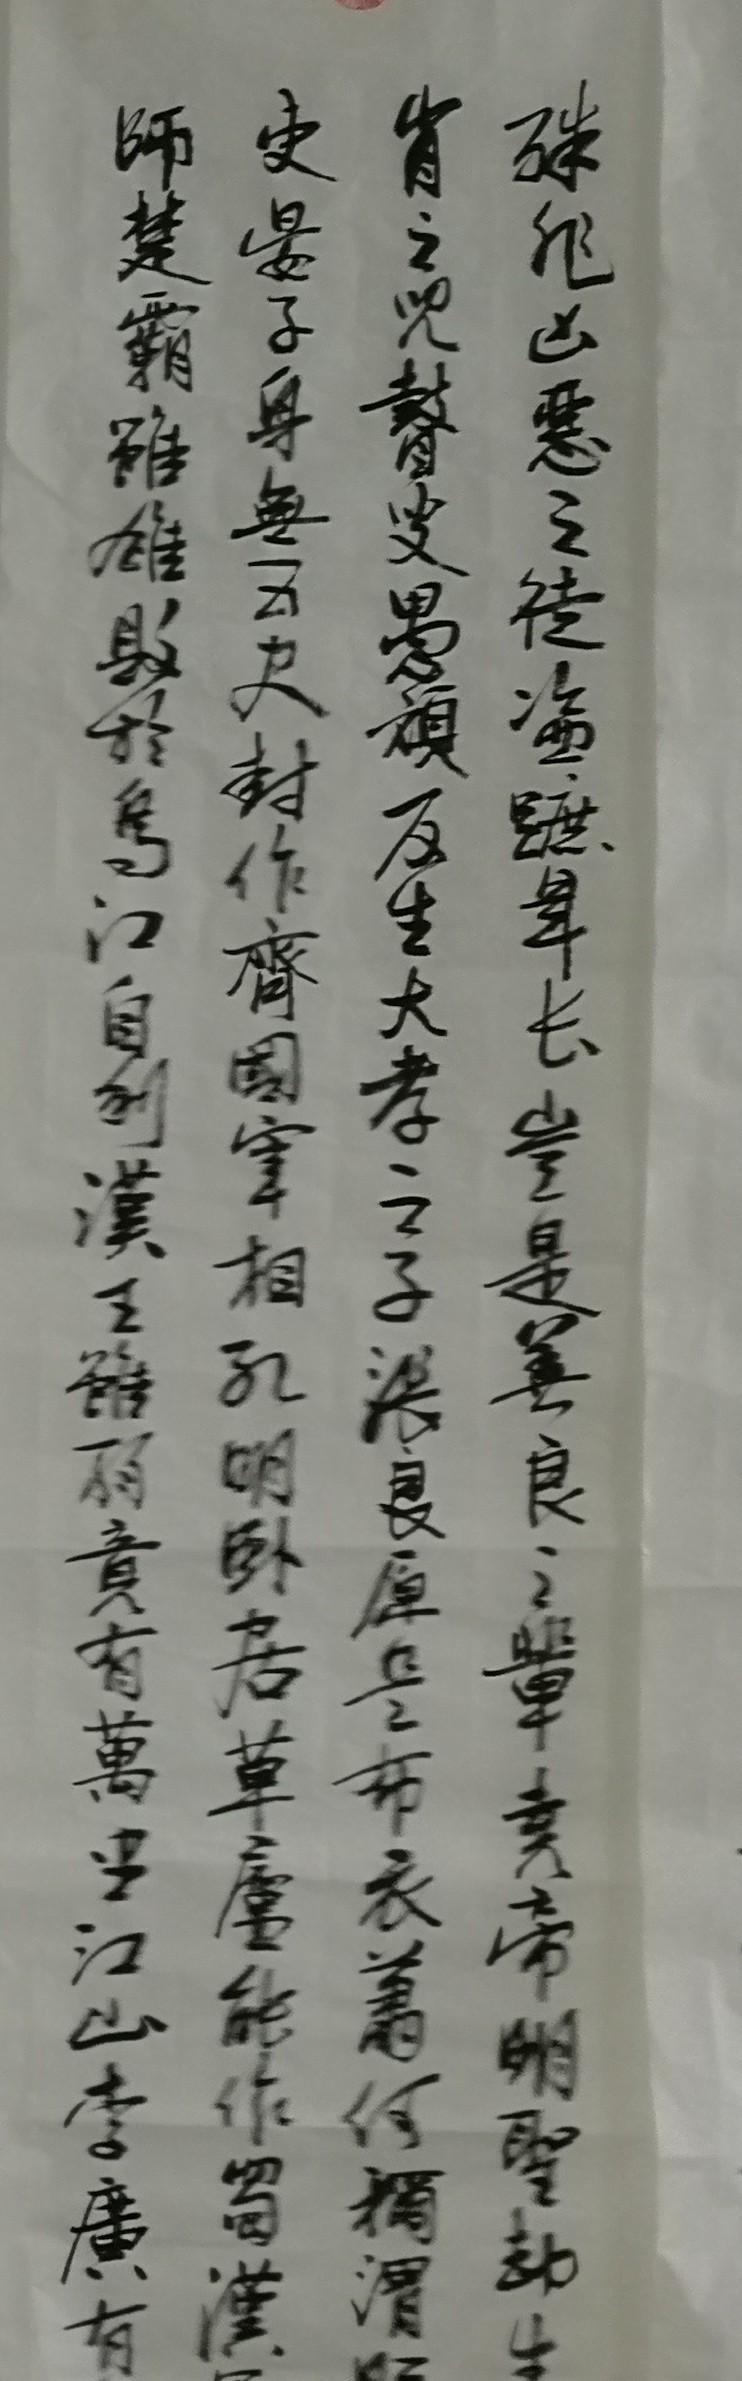 殊非凶惡之徒盗蹠年长豈是善良之輩堯帝明聖却生
肖之兒瞽叟愚頑反生大孝之子張良原是布衣蕭何稱謂縣
吏晏子身無五尺封作齊國宰相孔明卧居草廬能作蜀漢軍
師楚霸雖雄敗於烏江自刎漢王雖弱竟有萬里江山李廣有